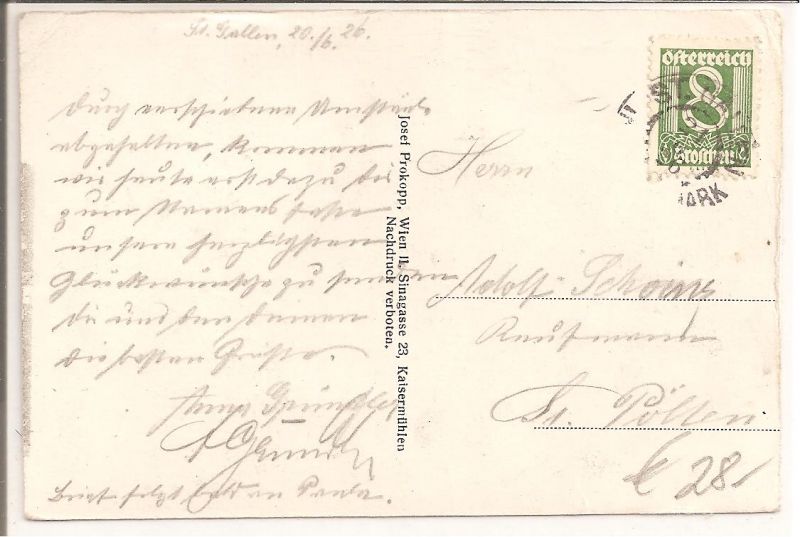 St. Gallen, 20./6. 26.
Durch verschiedene Umstände
abgehalten, kommen
wir heute erst dazu dir
zum Namens
unsere herzlichsten
Glückwünsche zu senden
die und den deinen
die besten Grüße.
Anna
Brief folgt bald an Paula.
Josef Prokopp, Wien II. Sinagasse 23, Kaisermühlen
Nachdruck verboten.
Österreich
8
Groschen
ST.
MARK
Herrn
Adolf
Kaufmann
St. Pölten
28